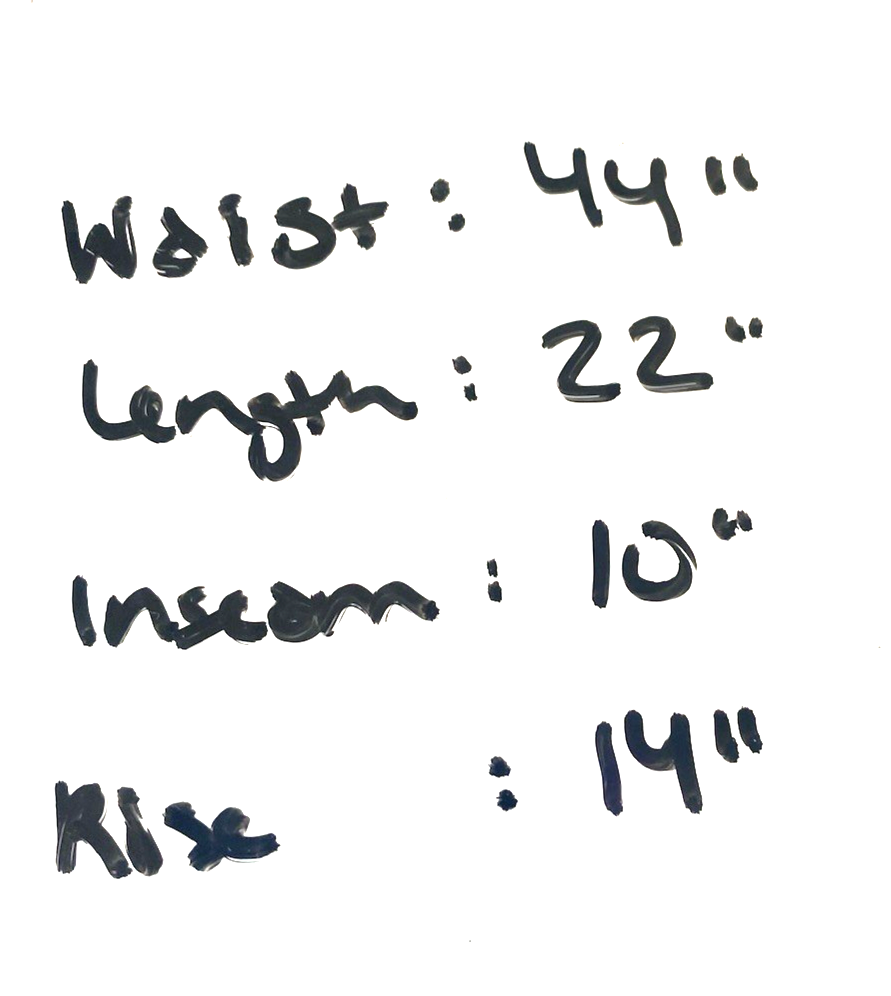 Waist : 44"
Length : 22"
Inseam : 10"
Rise : 14"